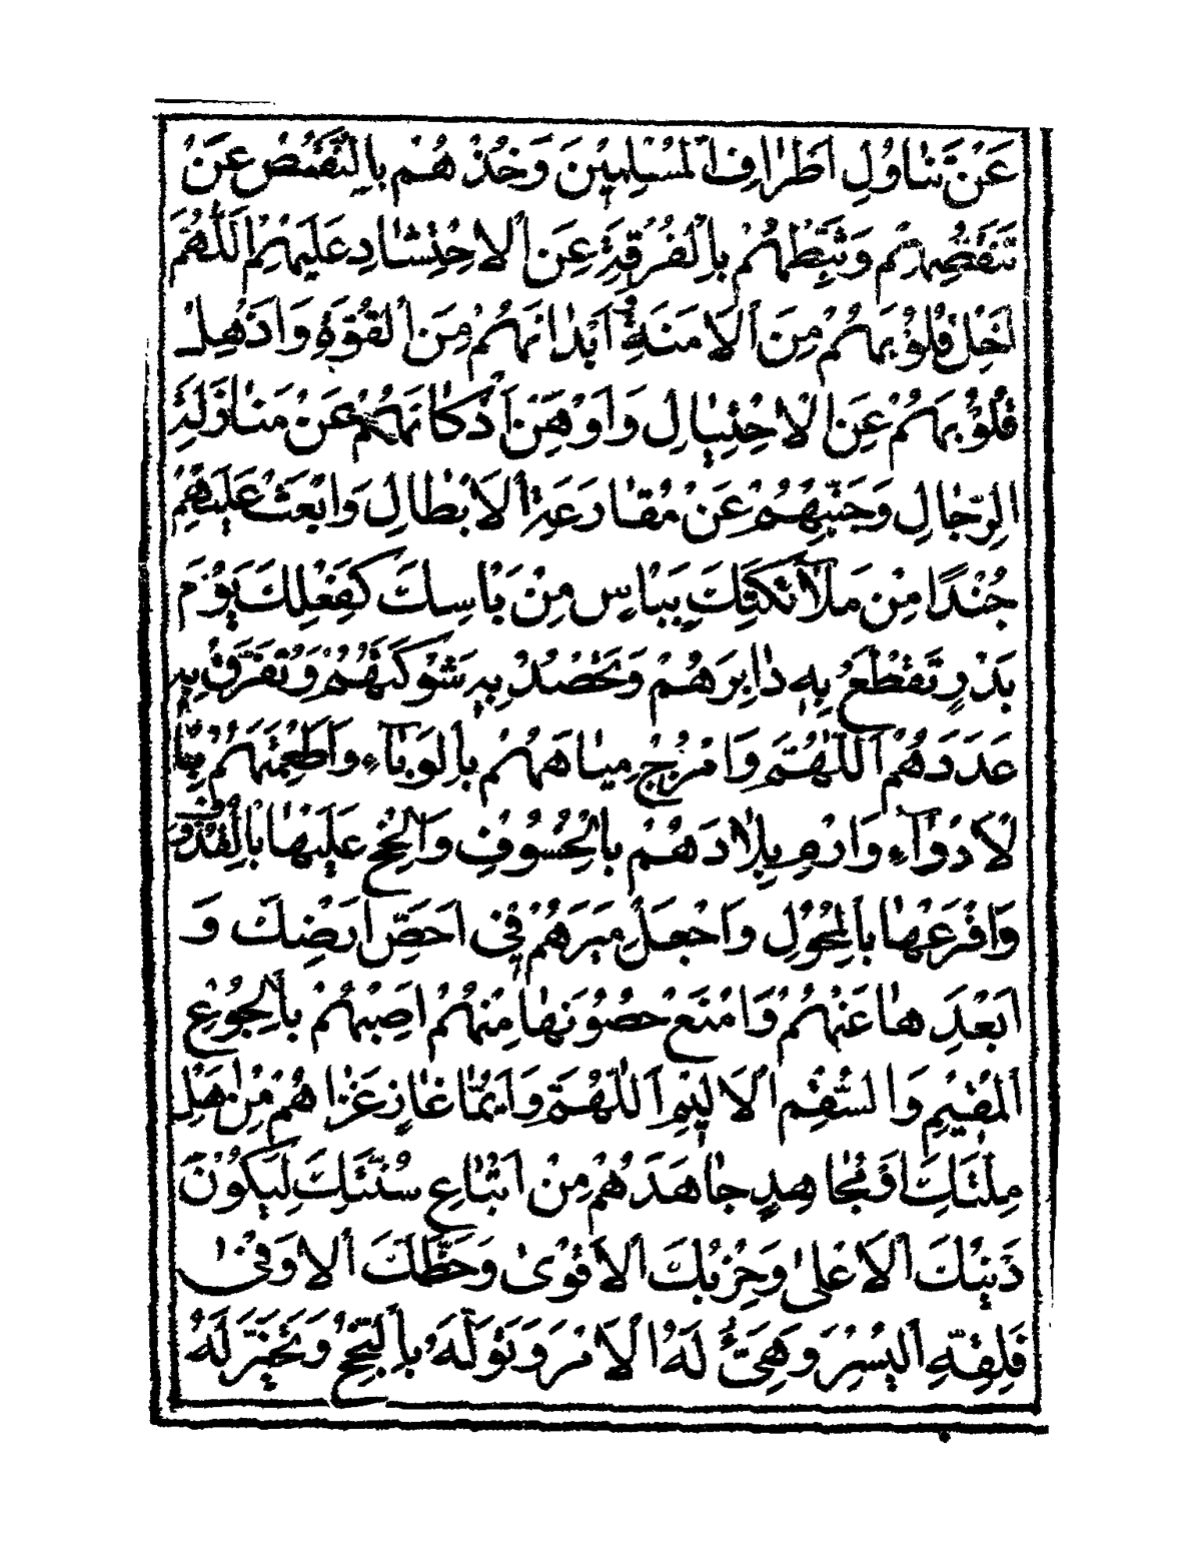 عَنْ تَنَاوُلِ اَطْرَافِ الْمُسْلِمِيْنَ وَخُذْهُمْ بِالنَّقْصِ عَنْ
تَنَقُّصِهِمْ وَثَبِّطْهُمْ بِالْفُرْقَةِ عَنِ الْاِحْتِشَادِ عَلَيْهِمْ اَللّٰهُمَّ
اَخْلِ قُلُوْبَهُمْ مِنَ الْاَمَنَةِ وَ اَبْدَانَهُمْ مِنَ الْقُوَّةِ وَاَذْهِلْ
قُلُوْبَهُمْ عَنِ الْاِحْتِيَالِ وَاَوْهِنْ اَرْكَانَهُمْ عَنْ مَنَازَلَةِ
الرِّجَالِ وَجَنِّبْهُمْ عَنْ مُقَارَعَةِ الْاَبْطَالِ وَابْعَثْ عَلَيْهِمْ
جُنْدًا مِنْ مَلٰٓائِكَتِكَ بِبَاْسٍ مِنْ بَاْسِكَ كَفِعْلِكَ يَوْمَ
بَدْرٍ تَقْطَعُ بِهٖ دَابِرَهُمْ وَتَحْصُدُ بِهٖ شَوْكَتَهُمْ وَتُفَرِّقُ بِهٖ
عَدَدَهُمْ اَللّٰهُمَّ وَامْزُجْ مِيَاهَهُمْ بِالْوَبَآءِ وَاَطْعِمَتَهُمْ بِا
لْاَدْوَآءِ وَارْمِ بِلَادَهُمْ بِالْخُسُوْفِ وَاَلِحَّ عَلَيْهَا بِالْقُذُوْفِ
وَافْرَعْهَا بِالْمُحُوْلِ وَاجْعَلْ مِيَرَهُمْ فِيْ اَحَصِّ اَرْضِكَ وَ
اَبْعَدِهَا عَنْهُمْ وَامْنَعْ حُصُوْنَهَا مِنْهُمْ اَصِبْهُمْ بِالْجُوْعِ
الْمُقِيْمِ وَالسُّقْمِ الْاَلِيْمِ اَللّٰهُمَّ وَاَيُّمَا غَازٍ غَزَاهُمْ مِنْ اَهْلِ
مِلَّتِكَ اَوْ مُجَاهِدٍ جَاهَدَهُمْ مِنْ اَتْبَاعِ سُنَّتِكَ لِيَكُوْنَ
دَيْنُكَ الْاَعْلٰى وَحِزْبُكَ الْاَقْوٰى وَحَظُّكَ الْاَوْفٰى
فَلَقِّهِ الْيُسْرَ وَهَيِّئْ لَهُ الْاَمْرَ وَتَوَلَّهُ بِالنُّجْحِ وَتَخَيَّرْ لَهُ